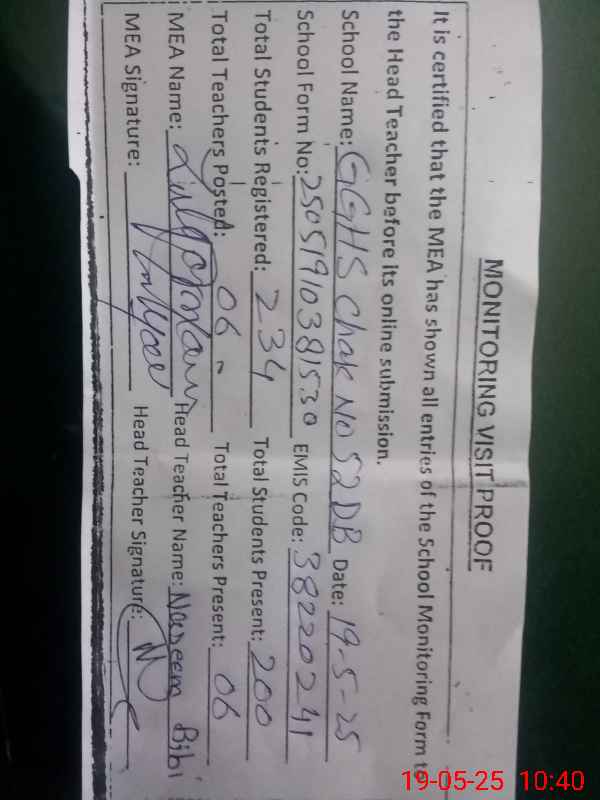 MONITORING VISIT PROOF
It is certified that the MEA has shown all entries of the School Monitoring Form to
the Head Teacher before its online submission.
School Name: GGHS Chak No 52 DB Date: 19-5-25
School Form No: 25051910381530 EMIS Code: 38220241
Total Students Registered: 234 Total Students Present: 200
Total Teachers Posted: 06 Total Teachers Present: 06
MEA Name: Head Teacher Name: Naseem Bibi
MEA Signature: Head Teacher Signature:
19-05-25 10:40